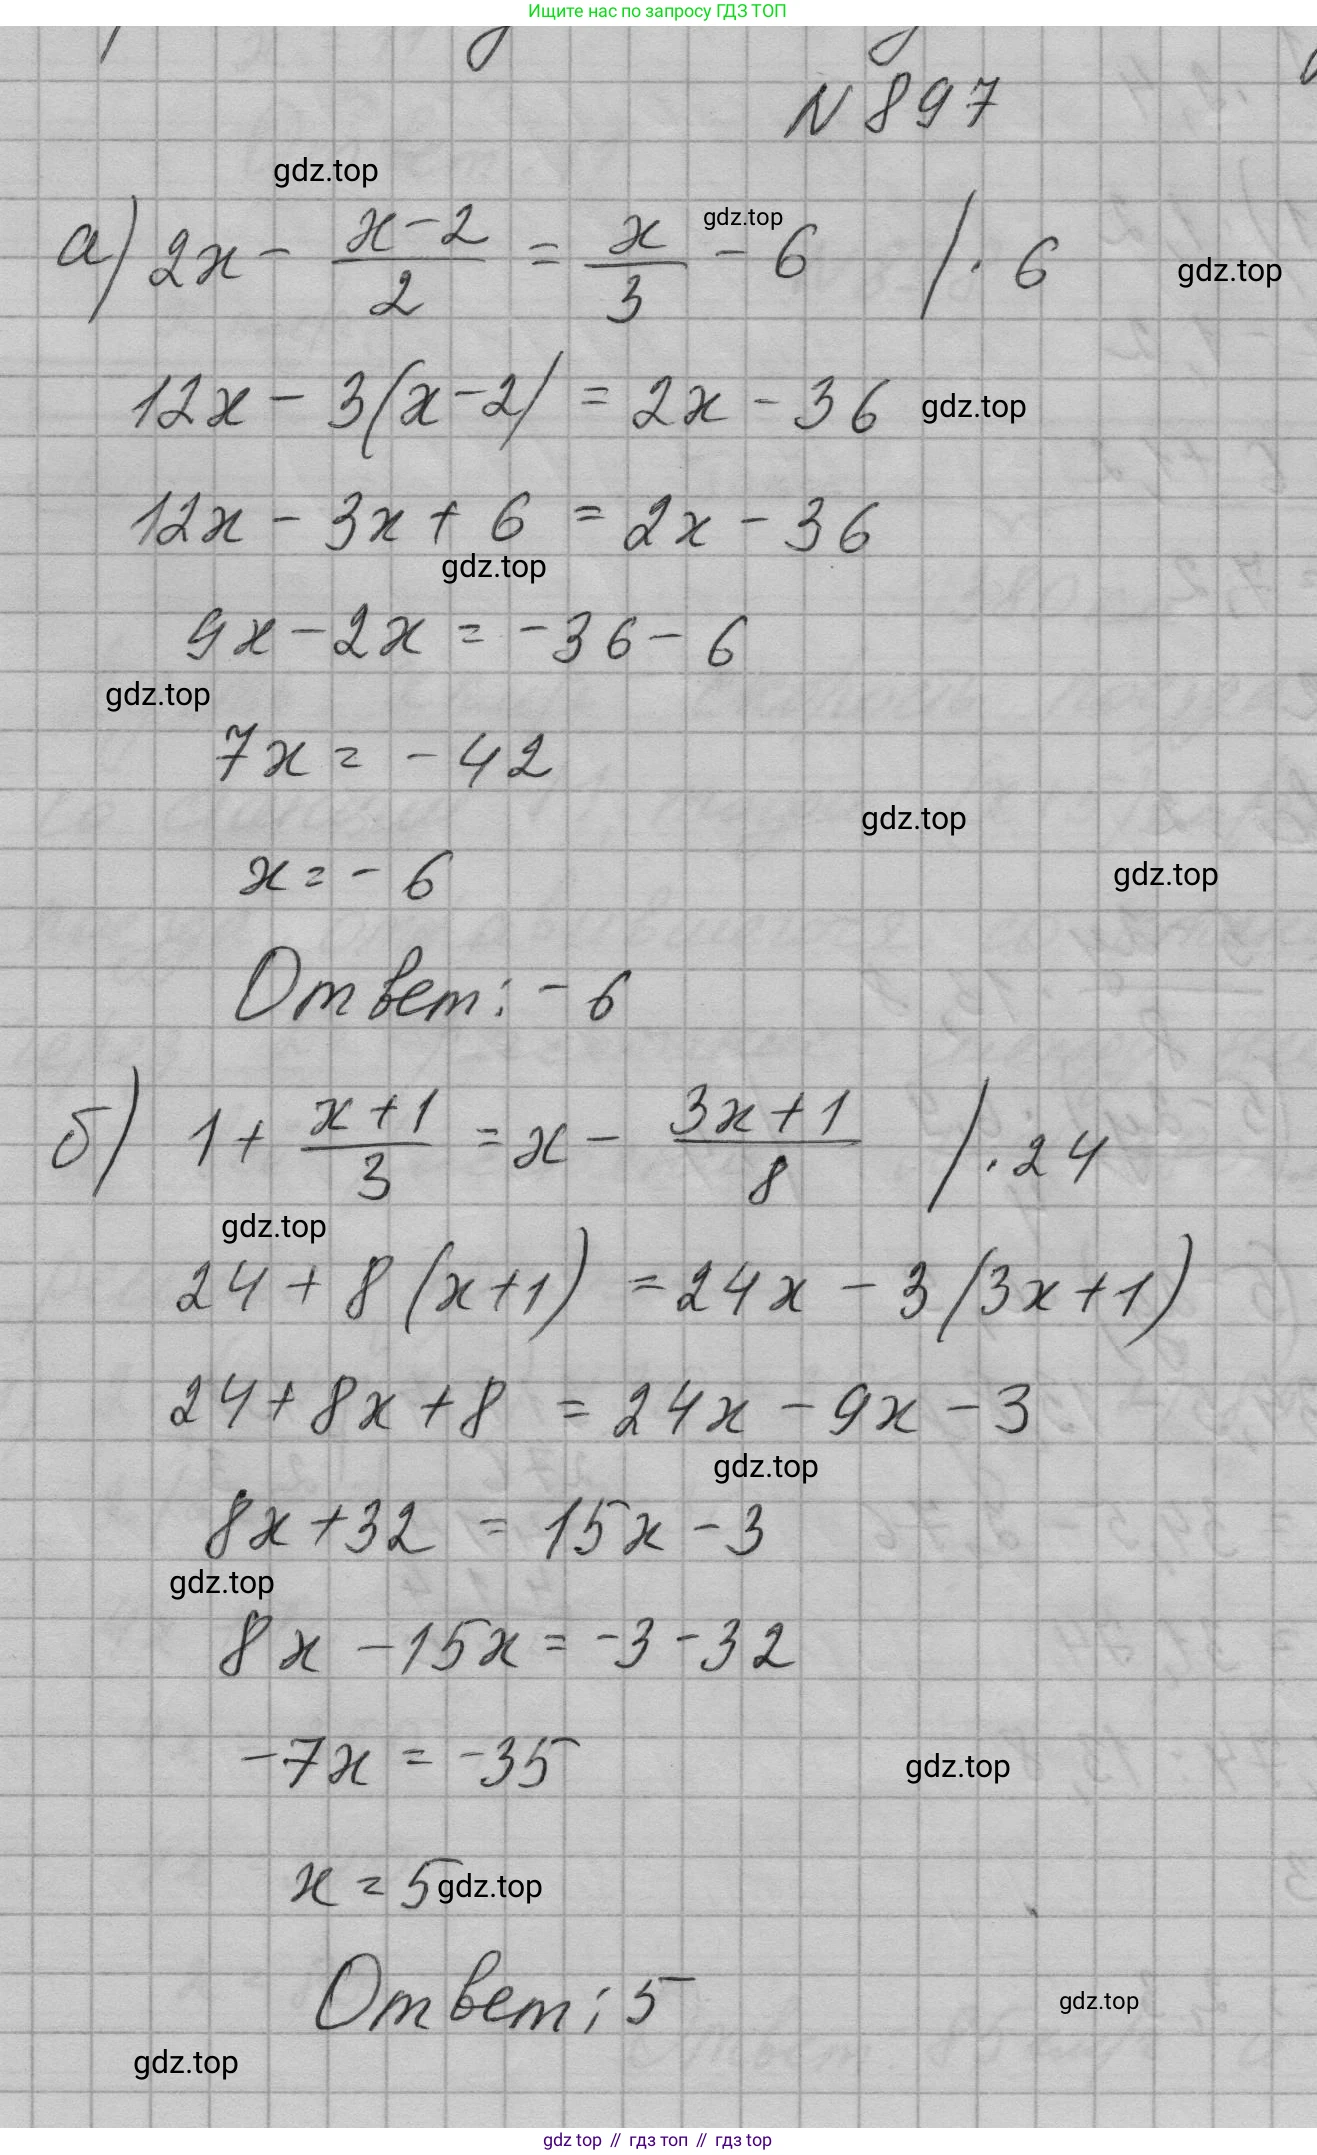 Ищите нас по запросу ГДЗ ТОП
N 897
gdz.top
а) 2x - \frac{x-2}{2} = \frac{x}{3} - 6 / · 6
gdz.top
gdz.top
12x - 3(x-2) = 2x - 36
gdz.top
12x - 3x + 6 = 2x - 36
gdz.top
9x - 2x = -36 - 6
gdz.top
7x = -42
gdz.top
x = -6
gdz.top
Ответ: -6
б) 1 + \frac{x+1}{3} = x - \frac{3x+1}{8} / · 24
gdz.top
24 + 8(x+1) = 24x - 3(3x+1)
24 + 8x + 8 = 24x - 9x - 3
gdz.top
8x + 32 = 15x - 3
gdz.top
8x - 15x = -3 - 32
-7x = -35
gdz.top
x = 5
gdz.top
Ответ: 5
gdz.top
gdz.top
gdz top // гдз топ // гдз top